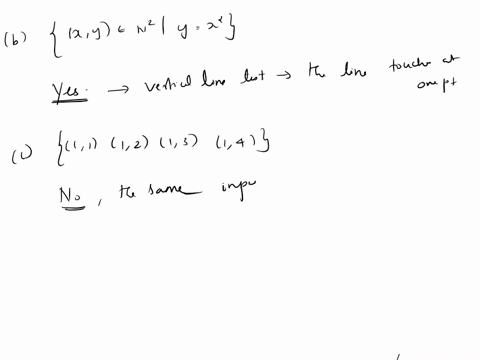 (b) {(x,y) ∈ N² | y = x²}
Yes. → vertical line test → the line touches at
one pt
(c) {(1,1) (1,2) (1,3) (1,4)}
No, the same inpu